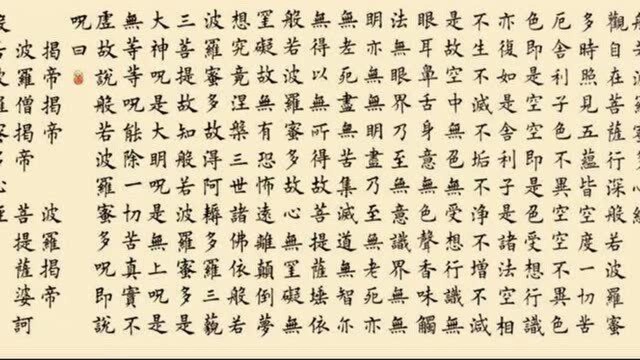 般若波羅蜜多心經
觀自在菩薩行深般若波羅蜜
多時照見五蘊皆空度一切苦
厄舍利子色不異空空不異色
色即是空空即是色受想行識
亦復如是舍利子是諸法空相
不生不滅不垢不淨不增不減
是故空中無色無受想行識無
眼耳鼻舌身意無色聲香味觸
法無眼界乃至無意識界無無
明亦無無明盡乃至無老死亦
無老死盡無苦集滅道無智亦
無得以無所得故菩提薩埵依
般若波羅蜜多故心無罣礙無
罣礙故無有恐怖遠離顛倒夢
想究竟涅槃三世諸佛依般若
波羅蜜多故得阿耨多羅三藐
三菩提故知般若波羅蜜多是
大神呪是大明呪是無上呪是
無等等呪能除一切苦真實不
虛故說般若波羅蜜多呪即說
呪曰
揭帝揭帝 波羅揭帝
波羅僧揭帝 菩提薩婆訶
般若波羅蜜多心經